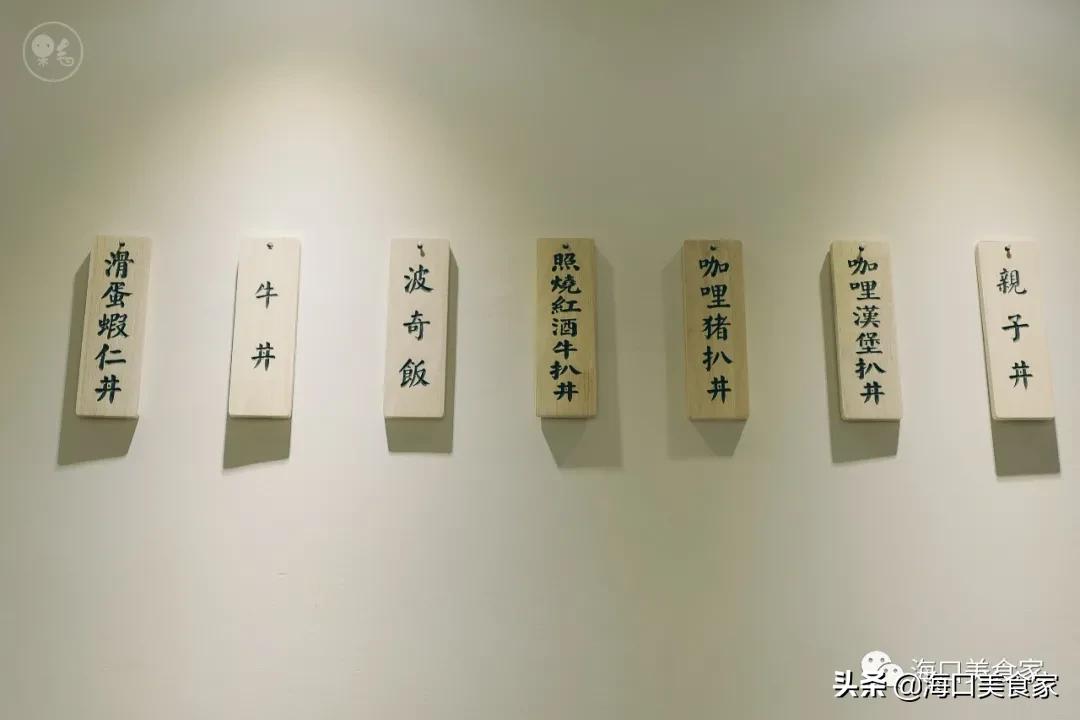 滑蛋蝦仁丼
牛丼
波奇飯
照燒紅酒牛扒丼
咖哩猪扒丼
咖哩漢堡扒丼
親子丼
海口美食家
头条 @海口美食家